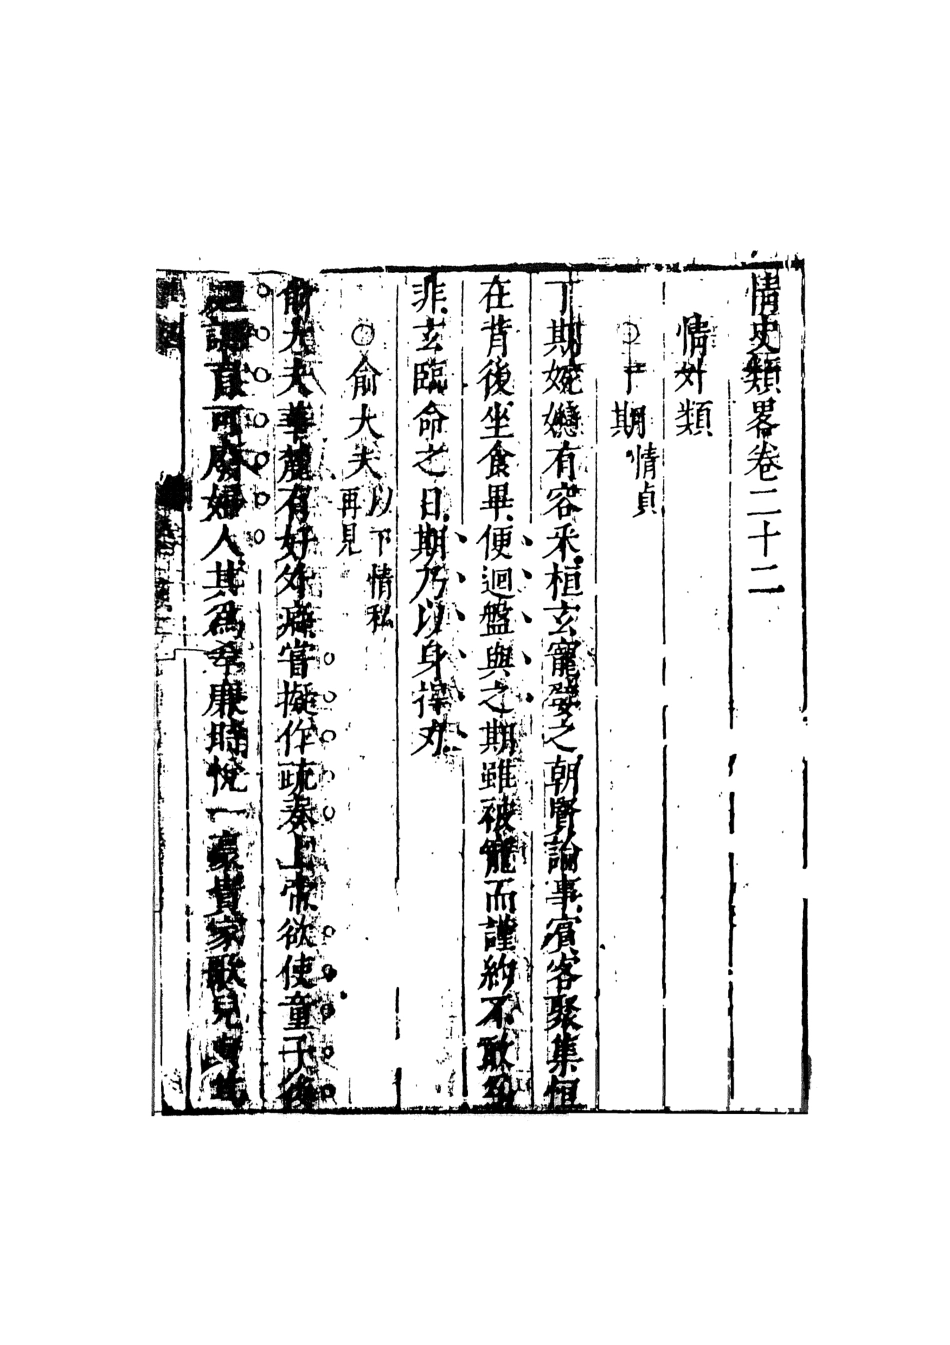 情史類畧卷二十二
情外類
○丁期情貞
丁期婉孌有容采桓玄寵嬖之朝賢論事賓客聚集恒
在背後坐食畢便迴盤與之期雖被寵而謹約不敢為
非玄臨命之日期乃以身捍刃
○俞大夫以下情私再見
俞大夫華麓有好外癖嘗擬作疏奏上帝欲使童子後
可廢婦人其為孝廉時悅一豪貴家歌兒